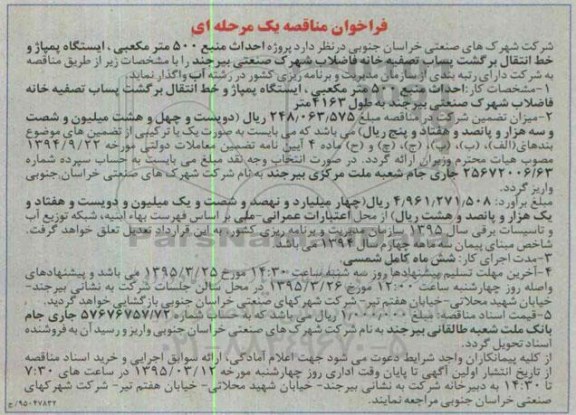 فراخوان مناقصه یک مرحله ای
شرکت شهرک های صنعتی خراسان جنوبی درنظر دارد پروژه احداث منبع ۵۰۰ متر مکعبی ، ایستگاه پمپاژ و
خط انتقال برگشت پساب تصفیه خانه فاضلاب شهرک صنعتی بیرجند را با مشخصات زیر از طریق مناقصه
به شرکت دارای رتبه بندی از سازمان مدیریت و برنامه ریزی کشور در رشته آب واگذار نماید.
۱-مشخصات کار: احداث منبع ۵۰۰ متر مکعبی ، ایستگاه پمپاژ و خط انتقال برگشت پساب تصفیه خانه
فاضلاب شهرک صنعتی بیرجند به طول ۴۱۶۳ متر
۲-میزان تضمین شرکت در مناقصه مبلغ ۲۴۸/۰۶۳/۵۷۵ ریال (دویست و چهل و هشت میلیون و شصت
و سه هزار و پانصد و هفتاد و پنج ریال) می باشد که می بایست به صورت یک یا ترکیبی از تضمین های موضوع
بندهای(الف)، (ب)، (پ)، (ج)، (چ) و (ح) ماده ۴ آیین نامه تضمین معاملات دولتی مورخه ۱۳۹۴/۹/۲۲
مصوب هیات محترم وزیران ارائه گردد. در صورت انتخاب وجه نقد مبلغ می بایست به حساب سپرده شماره
۲۵۶۷۲۰۰۶/۶۳ جاری جام شعبه ملت مرکزی بیرجند به نام شرکت شهرک های صنعتی خراسان جنوبی
واریز گردد.
مبلغ برآورد: ۴/۹۶۱/۲۷۱/۵۰۸ ریال(چهار میلیارد و نهصد و شصت و یک میلیون و دویست و هفتاد و
یک هزار و پانصد و هشت ریال) از محل اعتبارات عمرانی-ملی بر اساس فهرست بهاء ابنیه، شبکه توزیع آب
و تاسیسات برقی سال ۱۳۹۵ سازمان مدیریت و برنامه ریزی کشور به این قرارداد تعدیل تعلق خواهد گرفت.
شاخص مبنای پیمان سه ماهه چهارم سال ۱۳۹۴ می باشد.
۳-مدت اجرای کار: شش ماه کامل شمسی.
۴-آخرین مهلت تسلیم پیشنهادها روز سه شنبه ساعت ۱۴:۳۰ مورخ ۱۳۹۵/۳/۲۵ می باشد و پیشنهادهای
واصله روز چهارشنبه ساعت ۱۲:۰۰ مورخ ۱۳۹۵/۳/۲۶ در محل سالن جلسات شرکت به نشانی بیرجند-
خیابان شهید محلاتی-خیابان هفتم تیر- شرکت شهرکهای صنعتی خراسان جنوبی بازگشایی خواهد گردید.
۵-قیمت اسناد مناقصه: مبلغ ریال می باشد که به حساب شماره ۵۷۶۷۶۷۵۷/۷۲ جاری جام
بانک ملت شعبه طالقانی بیرجند به نام شرکت شهرک های صنعتی خراسان جنوبی واریز و رسید آن به فروشنده
اسناد تحویل گردد.
از کلیه پیمانکاران واجد شرایط دعوت می شود جهت اعلام آمادگی، ارائه سوابق اجرایی و خرید اسناد مناقصه
از تاریخ انتشار اولین آگهی تا پایان وقت اداری روز چهارشنبه مورخه ۱۳۹۵/۰۳/۱۲ در ساعت های ۷:۳۰
تا ۱۴:۳۰ به دبیرخانه شرکت به نشانی بیرجند- خیابان شهید محلاتی- خیابان هفتم تیر- شرکت شهرکهای
صنعتی خراسان جنوبی مراجعه نمایند.
۹۵۰۴۷۸۲۲/خ